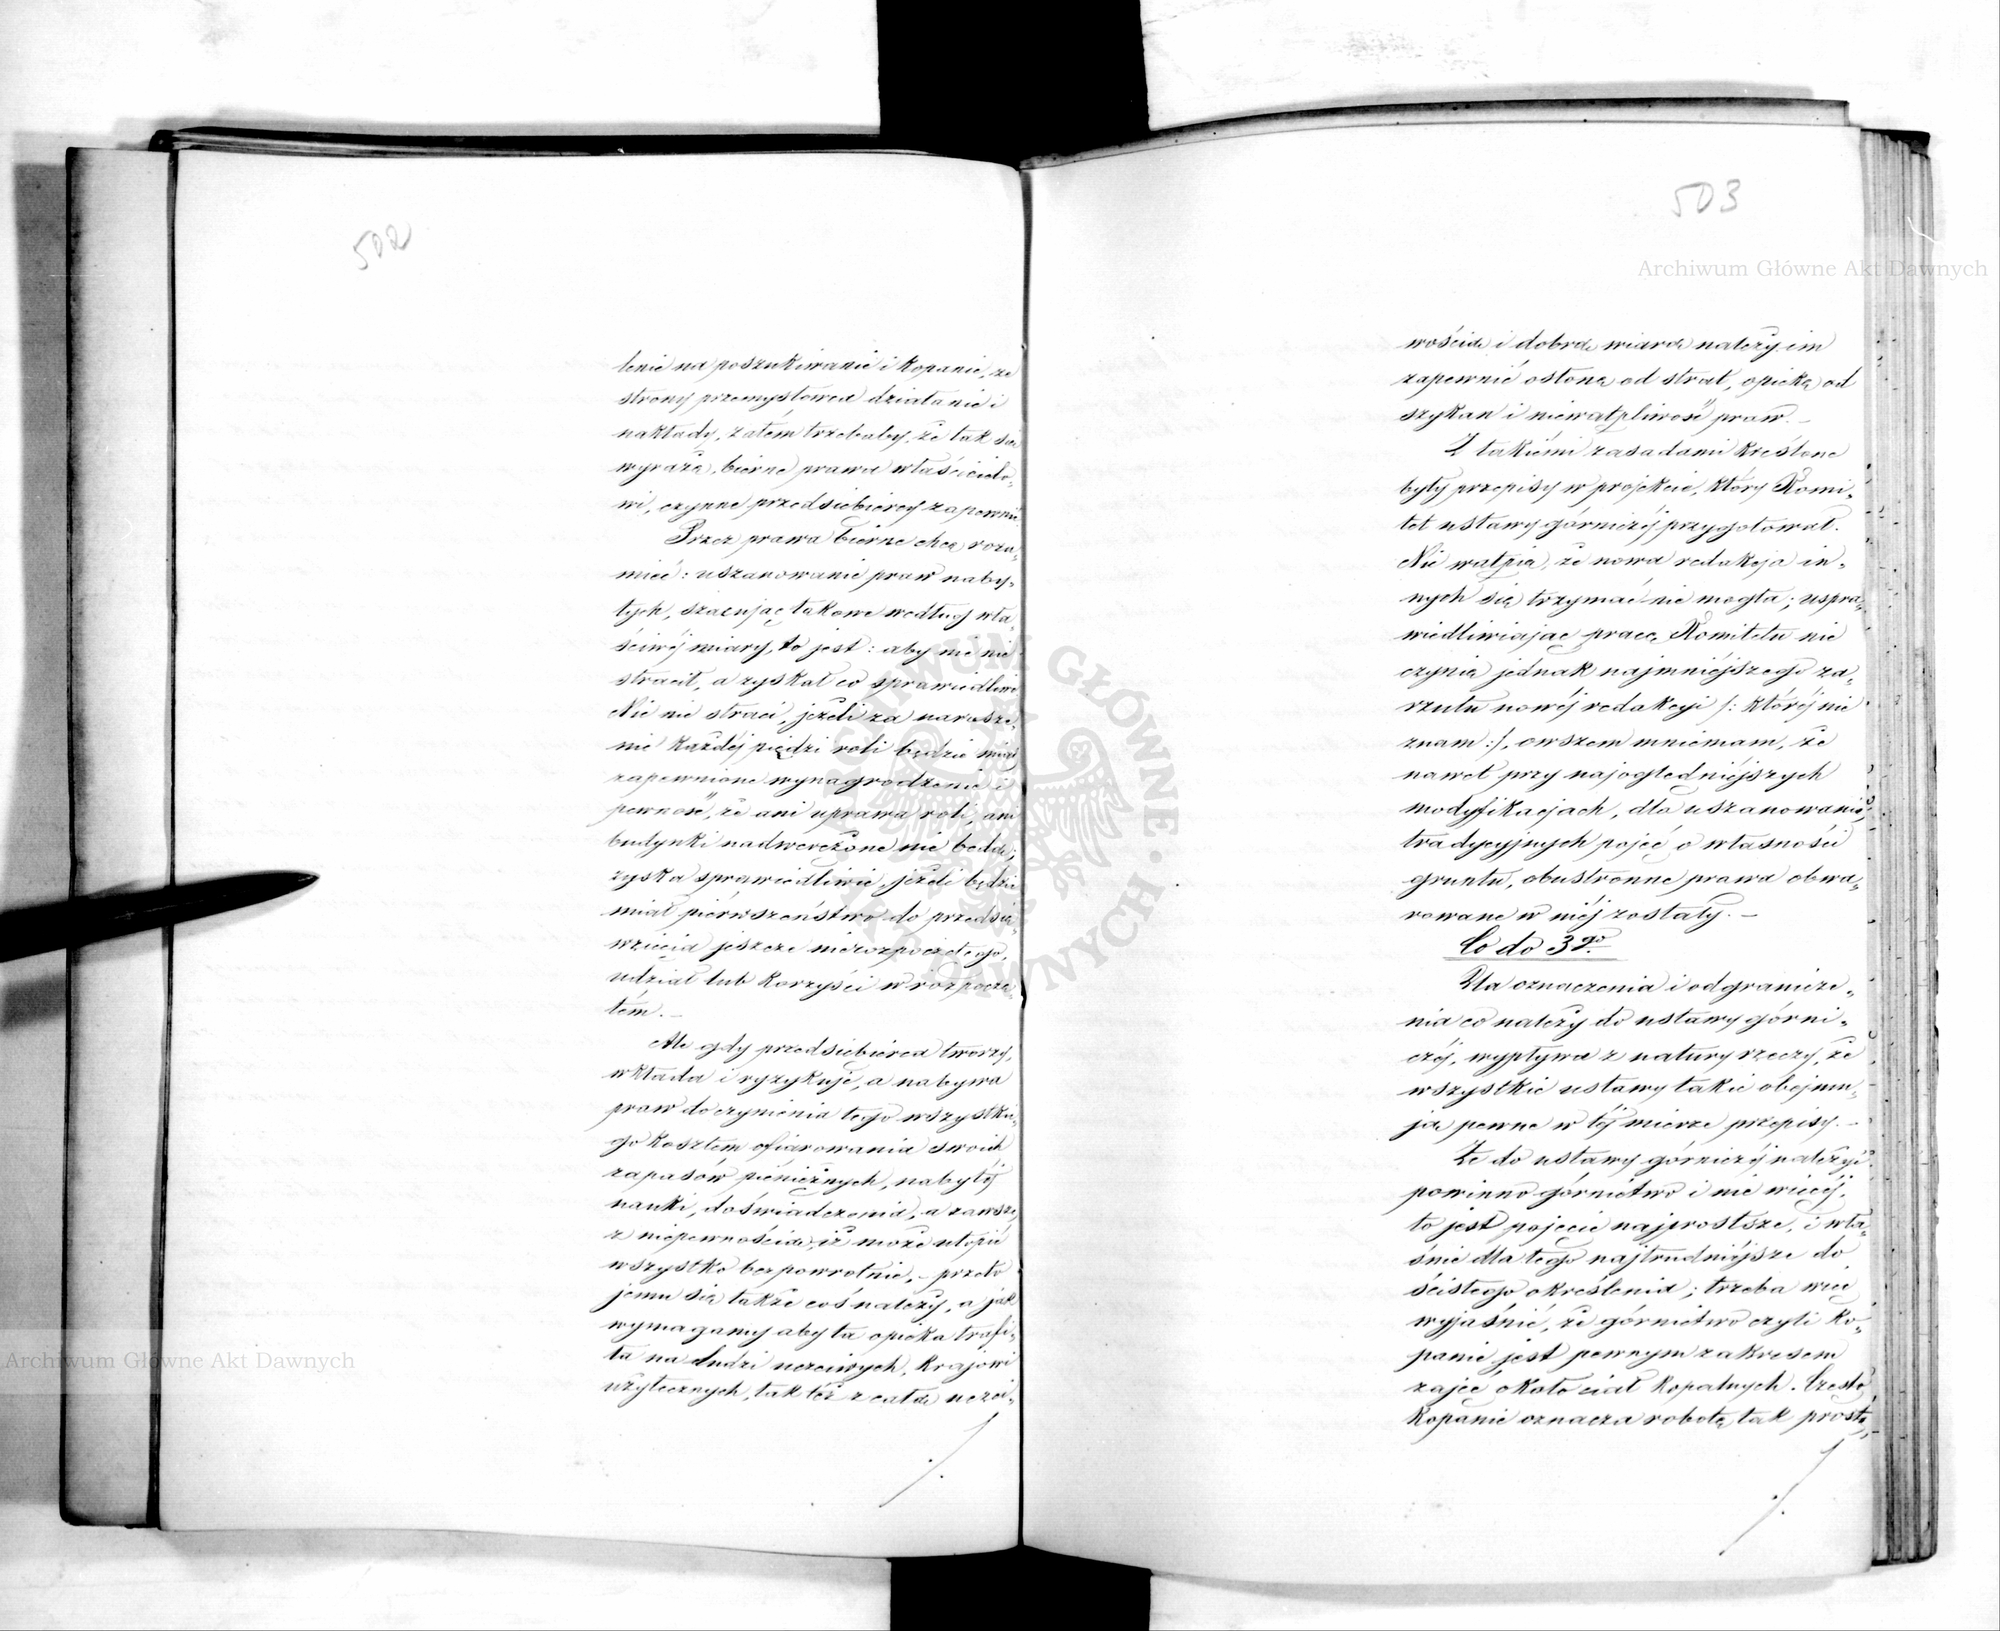 502
lenie na poszukiwanie i kopanie, ze
strony przemysłowca działanie i
nakłady, zatem trzebaby, że tak się
wyrażę, bierne prawa właścicielo-
wi, czynne przedsiębiercy zapewnić
Przez prawa bierne chcę rozu-
mieć: uszanowanie praw naby-
tych, szacując takowe według wła-
ściwéj miary, to jest: aby nic nie
stracił, a zyskał co sprawiedliwe
Nic nie straci, jeżeli za narusze-
nie każdéj piędzi roli będzie miał
zapewnione wynagrodzenie i
pewność, że ani uprawa roli, ani
budynki nadwerężone nie będą;
zyska sprawiedliwie, jeżeli będzie
miał pierwszeństwo do przedsię-
wzięcia jeszcze nierozpoczętego,
udział lub korzyści w rozpoczę-
tém. –
Ale gdy przedsiębierca tworzy,
wkłada i ryzykuje, a nabywa
praw do czynienia tego wszystkie-
go kosztem ofiarowania swoich
zapasów pieniężnych, nabytéj
nauki, doświadczenia, a zawsze
z niepewnością, iż może utopić
wszystko bezpowrotnie, – przeto
jemu się także coś należy, a jak
wymagamy aby ta opieka trafi-
ła na ludzi uczciwych, krajowi
użytecznych, tak też z całą uczci-
./.
503
Archiwum Główne Akt Dawnych
wością i dobrą wiarą należy im
zapewnić osłonę od strat, opiekę od
szykan i niewątpliwość praw. –
Z takiémi zasadami kréślone
były przepisy w projekcie, który Komi-
tet ustawy górniczéj przygotował.
Nie wątpię, że nowa redakcja in-
nych się trzymać nie mogła; uspra-
wiedliwiając pracę Komitetu nie
czynię jednak najmniéjszego za-
rzutu nowéj redakcyi /: któréj nie
znam :/, owszem mniemam, że
nawet przy najoględniéjszych
modyfikacjach, dla uszanowania
tradycyjnych pojęć o własności
gruntu, obustronne prawa obwa-
rowane w niéj zostały. –
Co do 3go.
Dla oznaczenia i odgranicze-
nia co należy do ustawy górni-
czéj, wypływa z natury rzeczy, że
wszystkie ustawy takie obejmu-
ją pewne w téj mierze przepisy. –
Że do ustawy górniczéj należyć
powinno górnictwo i nie więcéj,
to jest pojęcie najprostsze, i wła-
śnie dla tego najtrudniéjsze do
ścisłego określenia; trzeba więc
wyjaśnić, że górnictwo czyli ko-
panie jest pewnym zakresem
zajęć około ciał kopalnych. Często
kopanie oznacza robotę tak prostą,
./.
Archiwum Główne Akt Dawnych
ARCHIWUM GŁÓWNE AKT DAWNYCH